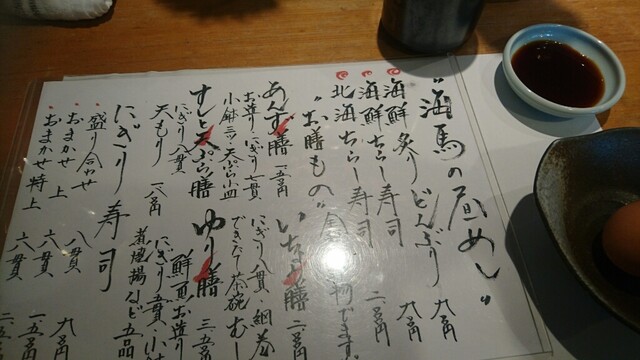 "海馬の昼めし"
海鮮炙りどんぶり 九百円
海鮮ちらし寿司 九百円
北海ちらし寿司 二百円
"お膳もの"
あんず膳 一五百円
お造り にぎり七貫
小鉢三ツ 天ぷら小皿
いちょう膳 二百円
にぎり八貫・細巻
できたて茶碗むし
すし天ぷら膳
にぎり八貫
天もり 一八百円
ゆり膳 三五百円
鮮魚お造り
にぎり五貫・小鉢
煮魚揚など五品
にぎり寿司
盛り合わせ 八貫 九百円
おまかせ上 六貫 一五百円
おまかせ特上 六貫 二五百円